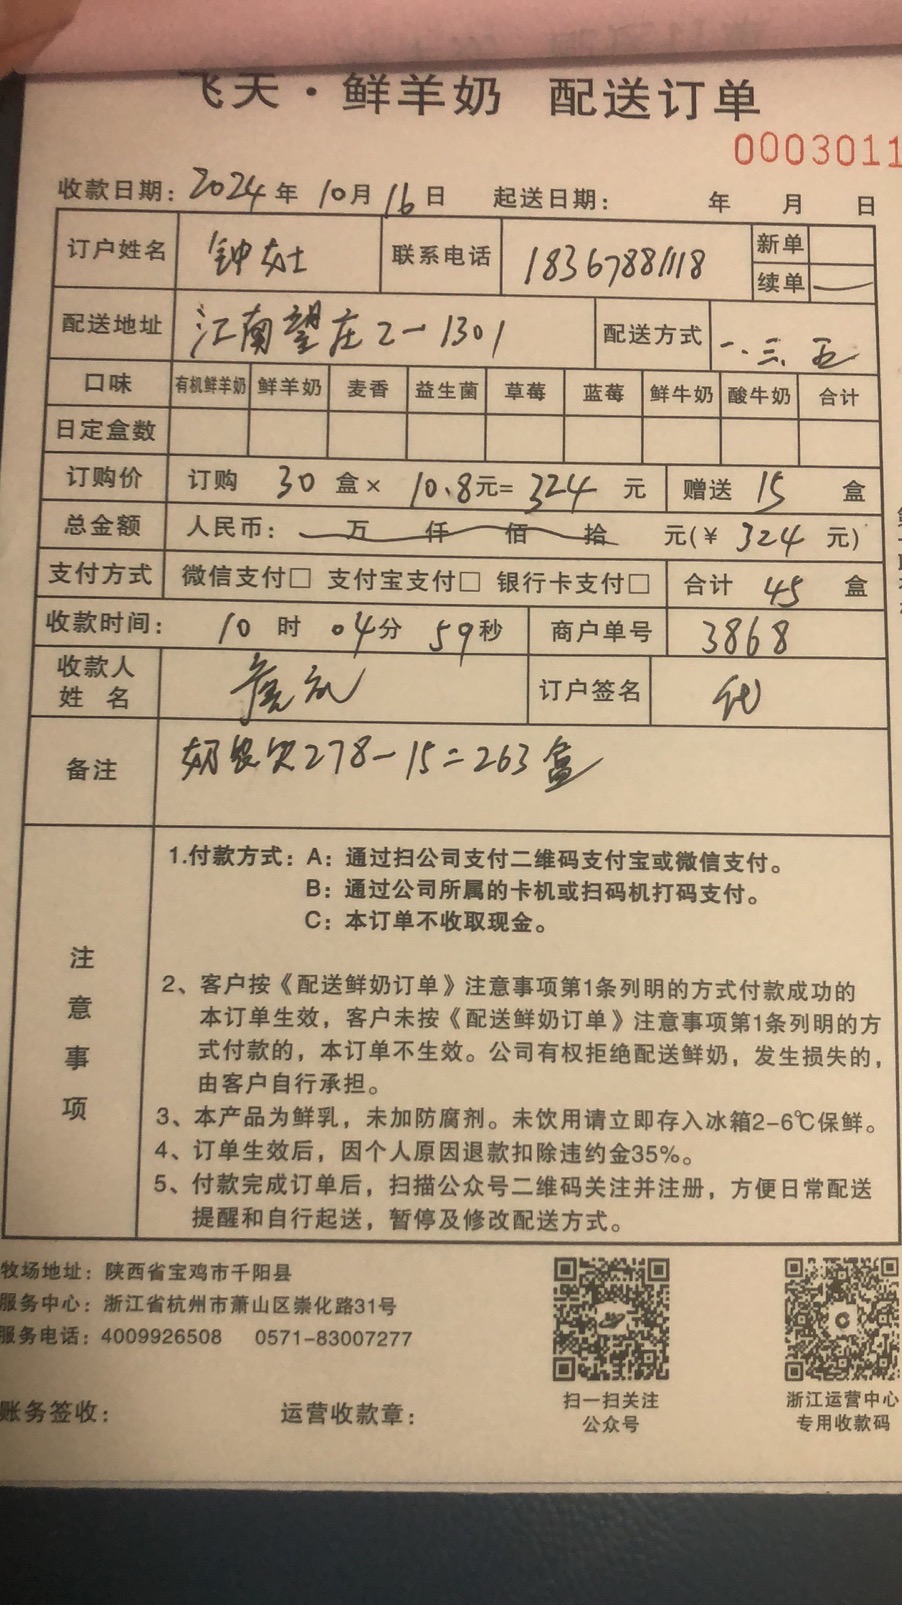 飞天·鲜羊奶 配送订单
0003011
收款日期：2024年 10月16日 起送日期： 年 月 日
订户姓名 钟女士 联系电话 18367881118 新单
续单
配送地址 江南望庄2-1301 配送方式 一.三.五
口味 有机鲜羊奶 鲜羊奶 麦香 益生菌 草莓 蓝莓 鲜牛奶 酸牛奶 合计
日定盒数
订购价 订购 30 盒× 10.8元= 324 元 赠送 15 盒
总金额 人民币： 万 仟 佰 拾 元(¥ 324 元)
支付方式 微信支付□ 支付宝支付□ 银行卡支付□ 合计 45 盒
收款时间： 10 时 04分 59秒 商户单号 3868
收款人
姓 名
订户签名 代
备注 欠278-15=263盒
注意事项
1.付款方式：A：通过扫公司支付二维码支付宝或微信支付。
B：通过公司所属的卡机或扫码机打码支付。
C：本订单不收取现金。
2、客户按《配送鲜奶订单》注意事项第1条列明的方式付款成功的
本订单生效，客户未按《配送鲜奶订单》注意事项第1条列明的方
式付款的，本订单不生效。公司有权拒绝配送鲜奶，发生损失的，
由客户自行承担。
3、本产品为鲜乳，未加防腐剂。未饮用请立即存入冰箱2-6℃保鲜。
4、订单生效后，因个人原因退款扣除违约金35%。
5、付款完成订单后，扫描公众号二维码关注并注册，方便日常配送
提醒和自行起送，暂停及修改配送方式。
牧场地址：陕西省宝鸡市千阳县
服务中心：浙江省杭州市萧山区崇化路31号
服务电话：4009926508 0571-83007277
扫一扫关注
公众号
浙江运营中心
专用收款码
账务签收： 运营收款章：